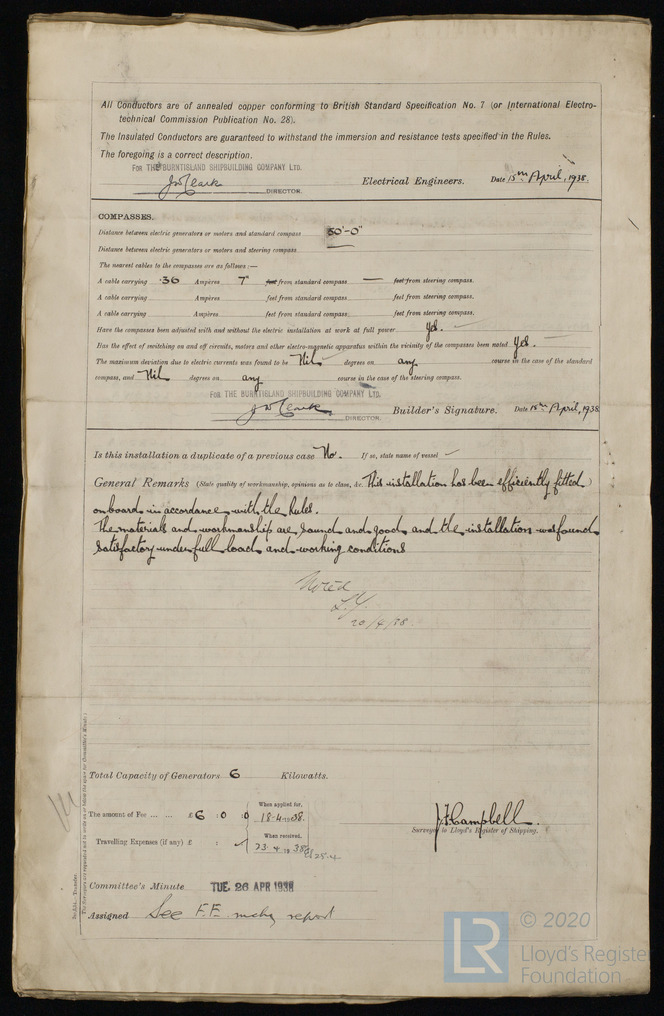 All Conductors are of annealed copper conforming to British Standard Specification No. 7 (or International Electro-
technical Commission Publication No. 28).
The Insulated Conductors are guaranteed to withstand the immersion and resistance tests specified in the Rules.
The foregoing is a correct description.
FOR THE BURNTISLAND SHIPBUILDING COMPANY LTD.
JW Clark DIRECTOR. Electrical Engineers. Date 15th April, 1938.
COMPASSES.
Distance between electric generators or motors and standard compass 60'-0"
Distance between electric generators or motors and steering compass —
The nearest cables to the compasses are as follows:—
A cable carrying .36 Ampères 7" feet from standard compass — feet from steering compass.
A cable carrying Ampères feet from standard compass, feet from steering compass.
A cable carrying Ampères feet from standard compass, feet from steering compass.
Have the compasses been adjusted with and without the electric installation at work at full power Yes.
Has the effect of switching on and off circuits, motors and other electro-magnetic apparatus within the vicinity of the compasses been noted Yes.
The maximum deviation due to electric currents was found to be Nil degrees on any course in the case of the standard
compass, and Nil degrees on any course in the case of the steering compass.
FOR THE BURNTISLAND SHIPBUILDING COMPANY LTD.
JW Clark DIRECTOR. Builder's Signature. Date 15th April, 1938
Is this installation a duplicate of a previous case No. If so, state name of vessel
General Remarks (State quality of workmanship, opinions as to class, &c. This installation has been efficiently fitted)
onboard in accordance with the Rules.
The materials and workmanship are sound and good and the installation was found
satisfactory under full load and working conditions
Noted
20/4/38.
Total Capacity of Generators 6 Kilowatts.
The amount of Fee ... ... £ 6 : 0 : 0 When applied for, 18.4.1938.
Travelling Expenses (if any) £ : When received, 23.4.1938
J F Campbell.
Surveyor to Lloyd's Register of Shipping.
Committee's Minute TUE. 26 APR 1938
Assigned See F.E. mchy report
5m.8.34.—Transfer.
The Surveyors are requested not to write on or below the space for Committee's Minute.
LR
© 2020
Lloyd's Register
Foundation